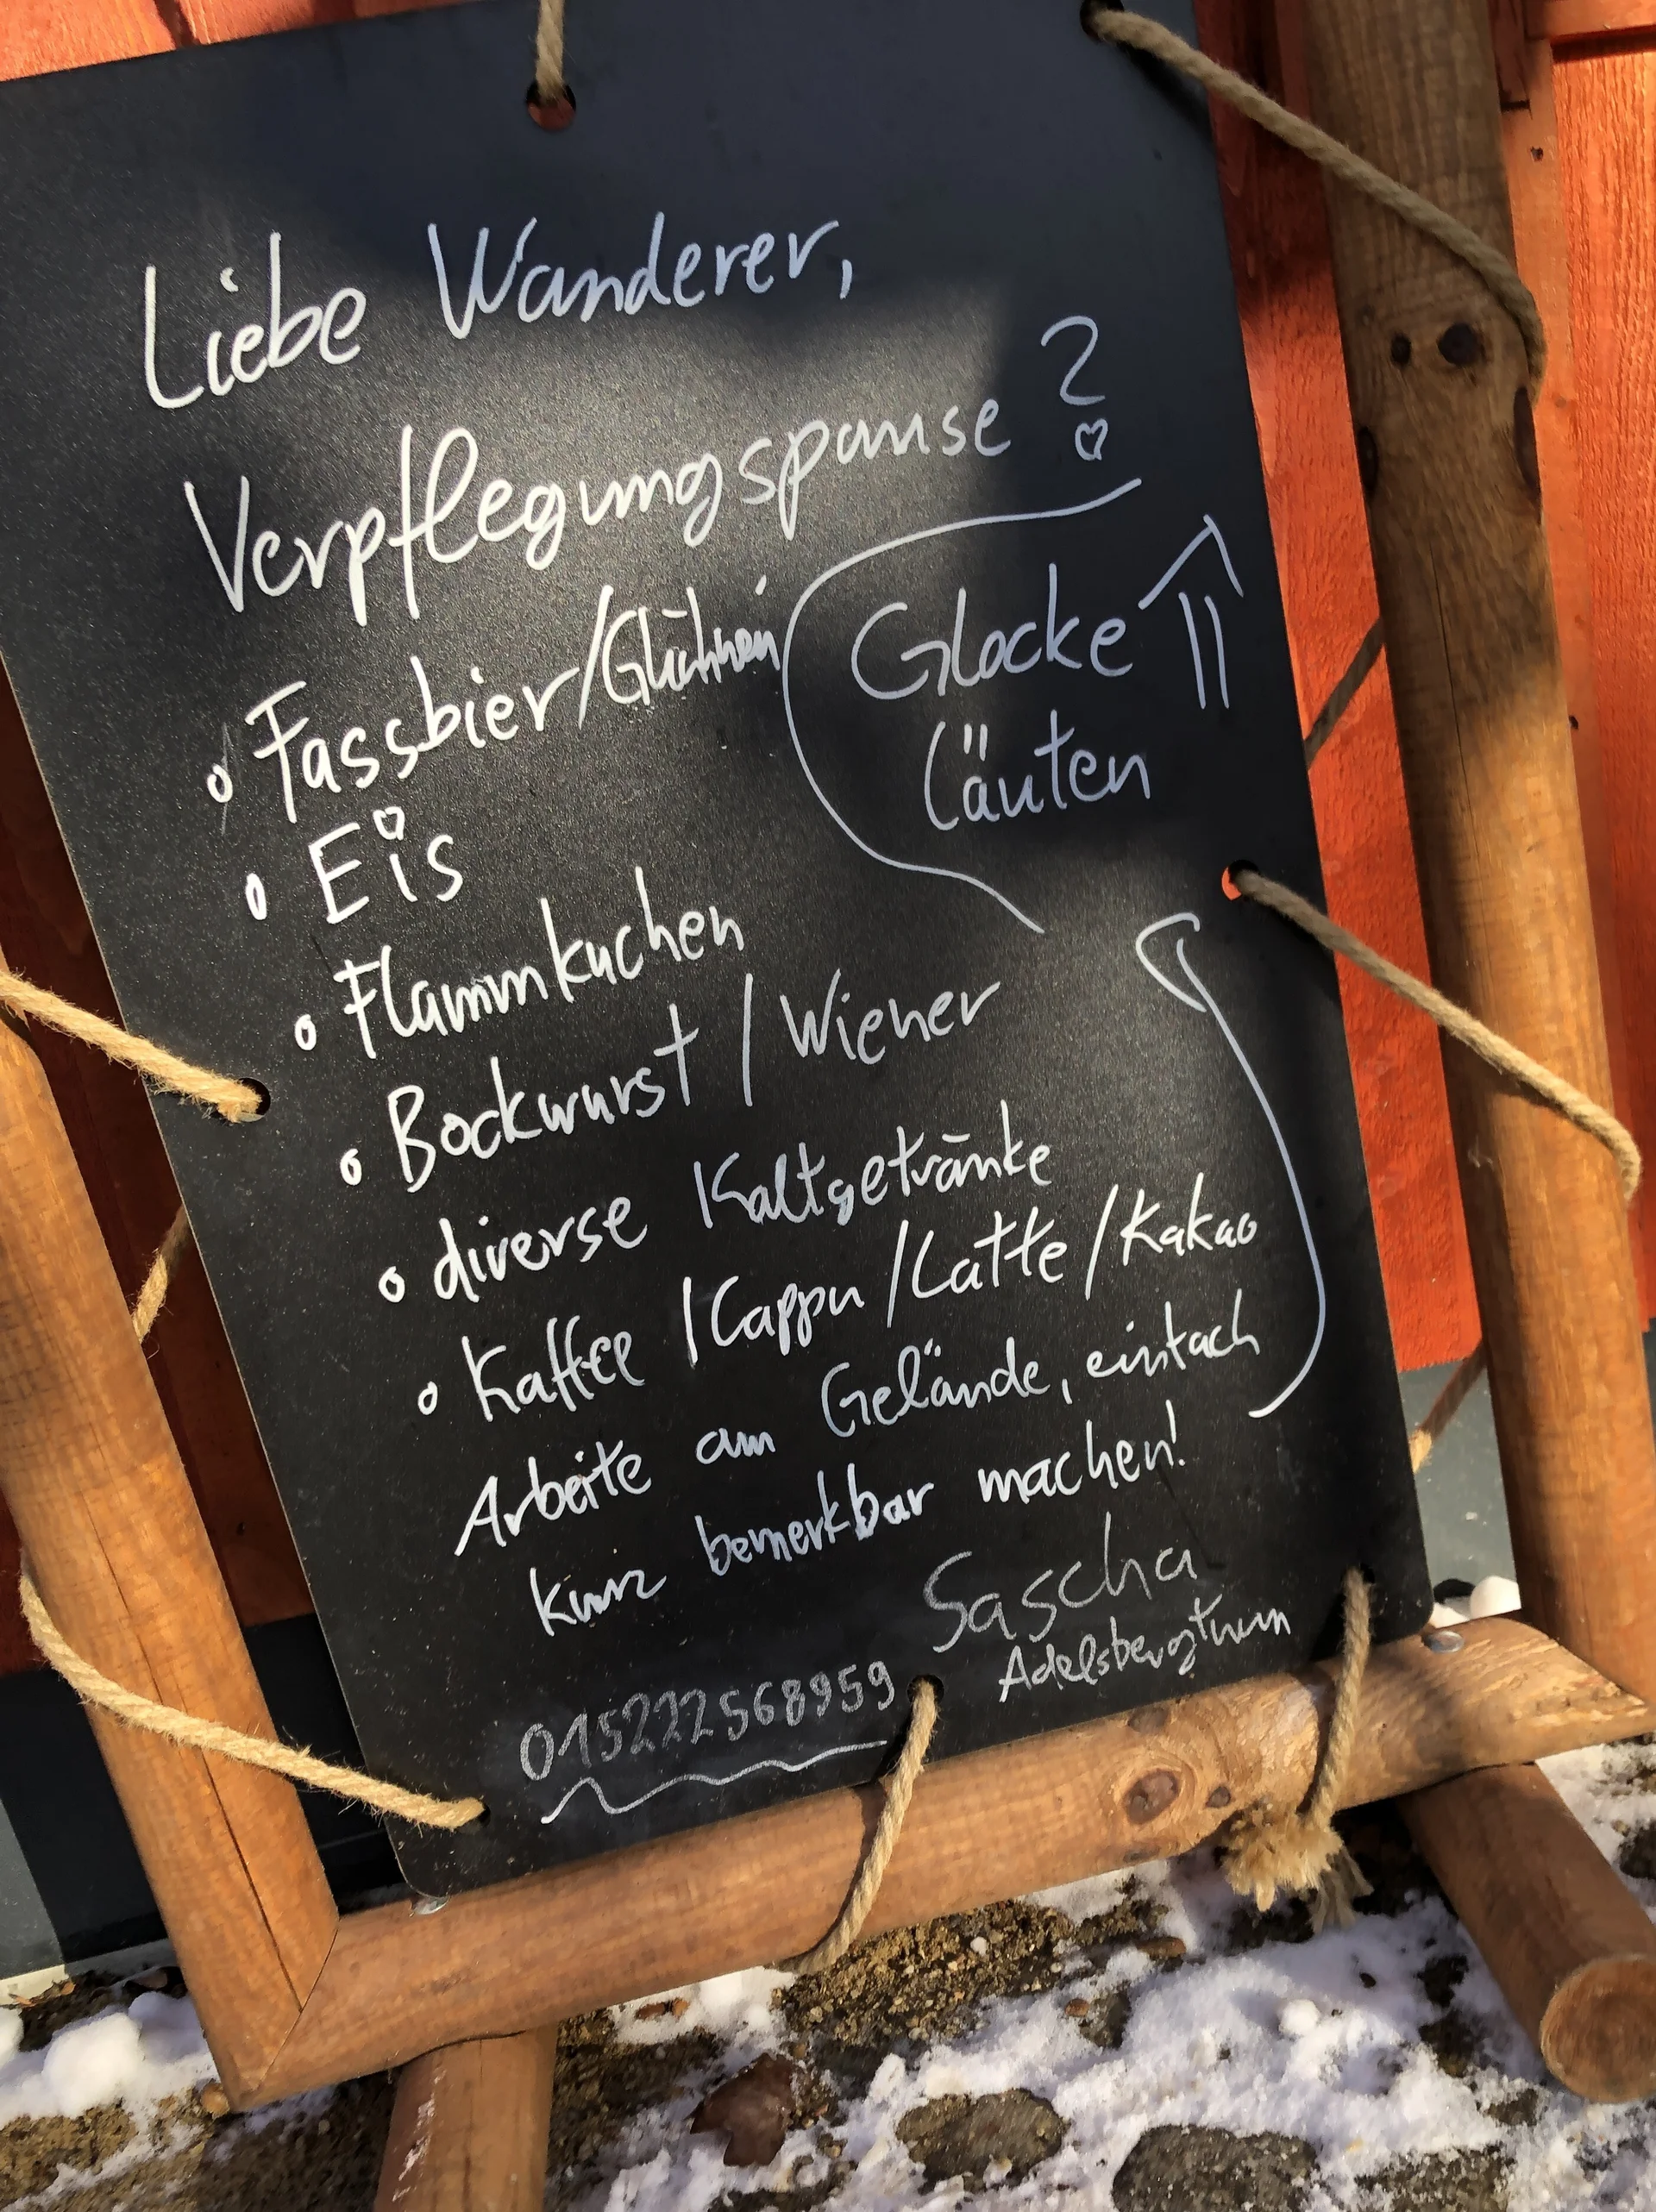 Liebe Wanderer,
Verpflegungspause ?
Glocke
läuten
Fassbier/Glühwein
Eis
Flammkuchen
Bockwurst / Wiener
diverse Kaltgetränke
Kaffee / Cappu / Latte / Kakao
Arbeite am Gelände, einfach
kurz bemerkbar machen!
Sascha
Adelsbergturm
015222568959